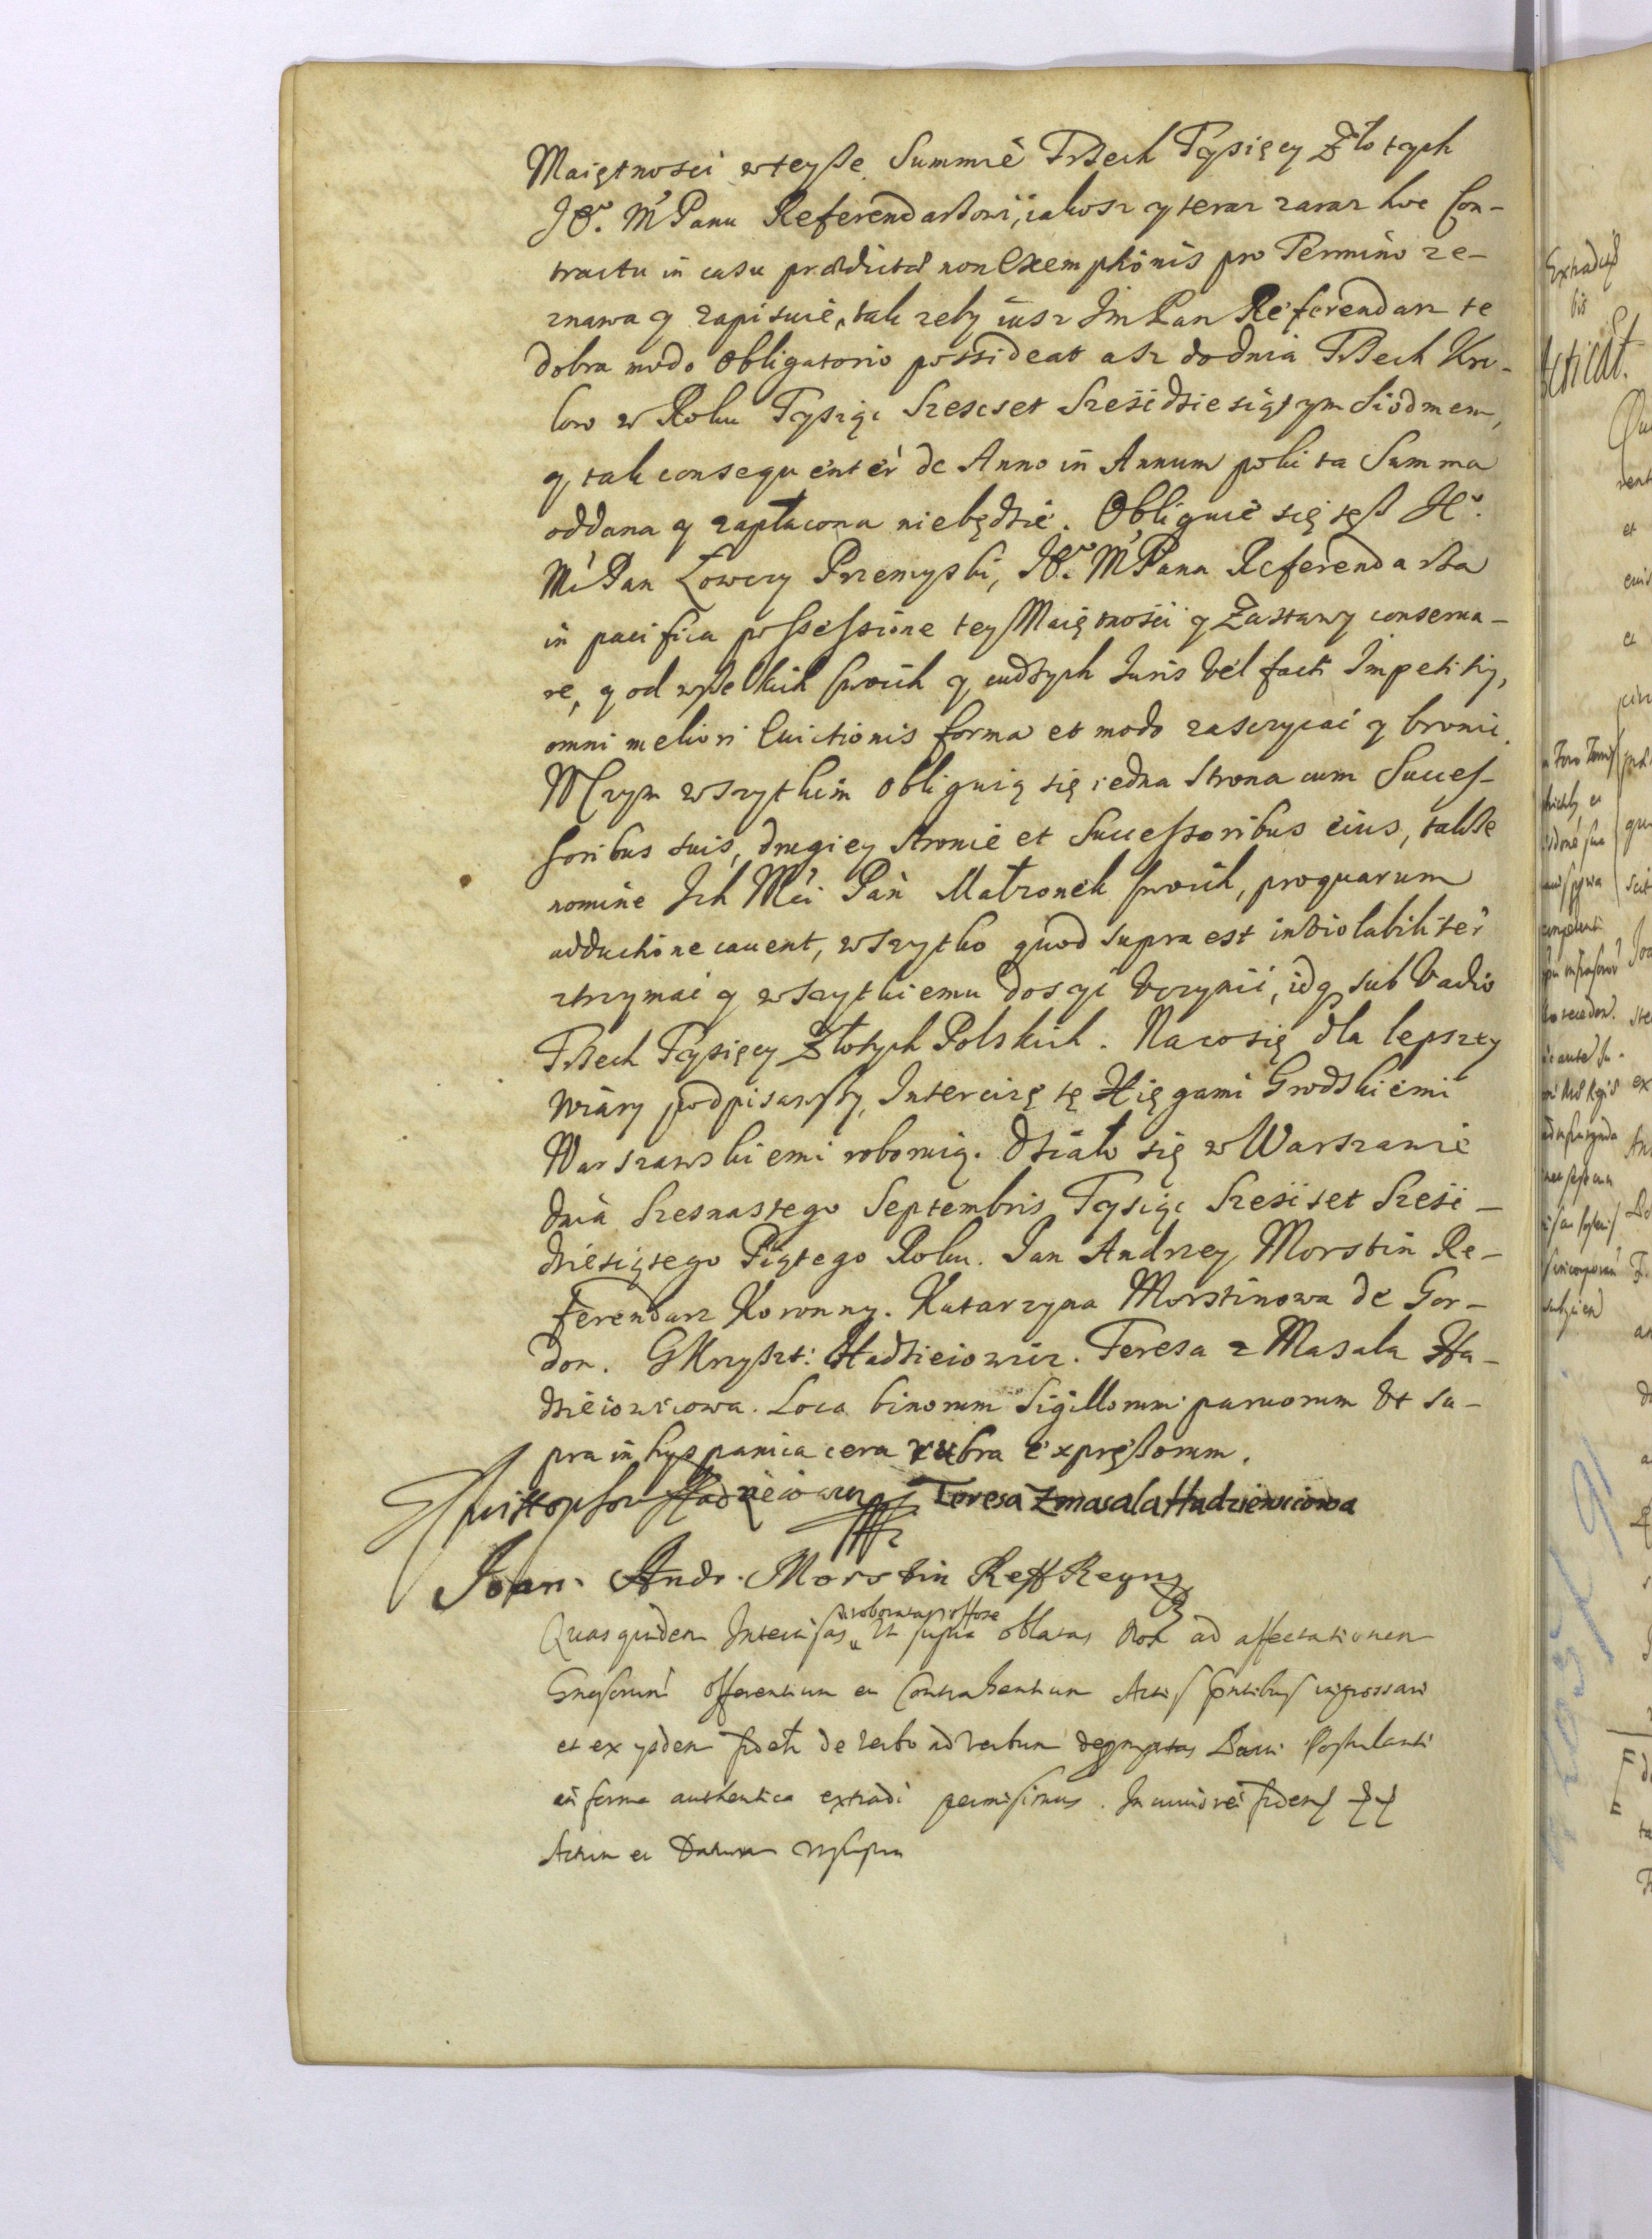 Maiętnosci wteyße Summie Trzech Tysięcy Złotych
Je°. M Panu Referendarzowi, iakosz y teraz zaraz hoc Con-
tractu in casu praedictae non Exemptionis pro Termino ze-
znawa y zapisuie, tak zeby iusz Jm Pan Referendarz te
dobra modo Obligatorio possideat asz do dnia Trzech Kro-
low w Roku Tysiąc Szescset Szescdziesiątym Siodmem,
y tak consequenter de Anno in Annum poki ta Summa
oddana y zapłacona niebędzie. Obliguie się tesz Je°.
Mc Pan Łowczy Przemyski, Je°. M Pana Referendarza
in pacifica possessione tey Maiętnosci y Zastawy conserua-
re, y od wßelkich swoich y cudzych Juris Vel facti Impetitiy,
omni meliori Euictionis forma et modo zasczycać y bronić.
W Czym wszytkim obliguią się iedna Strona cum Succes-
soribus suis, drugiey stronie et Successoribus eius, takße
nomine Ich Mci Pań Małzonek swoich, pro quarum
adductione cauent, wszytko quod supra est inviolabiliter
ztrzymać y wszytkiemu dosyć Vczynić, idq sub Vadio
Trzech Tysięcy Złotych Polskich. Na co się dla lepszey
wiary podpisawszy, Intercizę tę Xięgami Grodskiemi
Warszawskiemi roboruią. Działo się w Warszawie
dnia Szesnastego Septembris Tysiąc Szescset Szesc-
dziesiątego Piątego Roku. Jan Andrzey Morstin Re-
ferendarz Koronny. Katarzyna Morstinowa de Gor-
don. GKrzyszt: Hadzieiowicz. Teresa z Masala Ha-
dzieiowicowa. Loca binorum Sigillorum paruorum Vt su-
pra in hyspanica cera rubra expreßorum.
Christophor Hadzieiowicz Teresa Zmasala Hadzieiuiciowa
Joan. Andr. Morstin Reff Regny
roboratas
Quas quidem Intercisas Vt supra oblatas Nos ad affectationem
offerentium et Contrahentium Actis ingrossari
et ex ysdem de verbo ad verbum Parti Postulanti
in forma authentica extradi permisimus. In cuius rei fidem
Actum et Datum vt supra